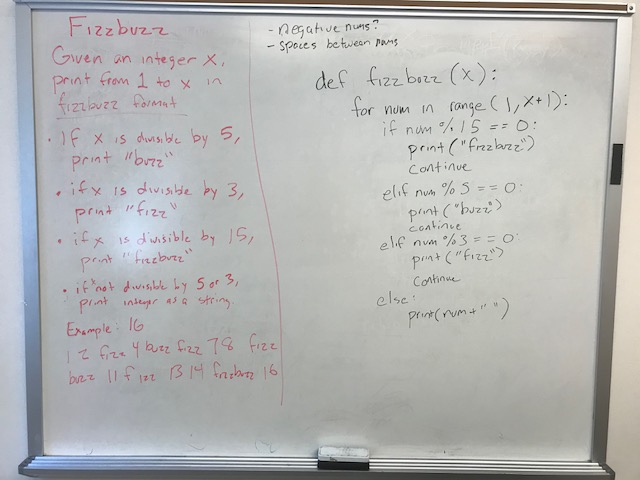 Fizzbuzz
Given an integer x,
print from 1 to x in
fizzbuzz format
• If x is divisible by 5,
print "buzz"
• if x is divisible by 3,
print "fizz"
• if x is divisible by 15,
print "fizzbuzz"
• if x not divisible by 5 or 3,
print integer as a string.
Example: 16
1 2 fizz 4 buzz fizz 7 8 fizz
buzz 11 fizz 13 14 fizzbuzz 16
- negative nums?
- spaces between nums
def fizzbuzz (x):
for num in range (1, x+1):
if num % 15 == 0:
print ("fizzbuzz")
continue
elif num % 5 == 0:
print ("buzz")
continue
elif num % 3 == 0:
print ("fizz")
continue
else:
print(num + " ")